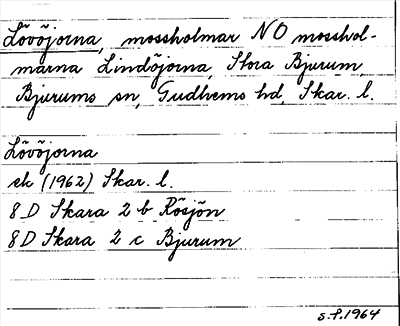 Lövöjorna, mossholmar NO mosshol-
marna Lindöjorna, Stora Bjurum,
Bjurums sn, Gudhems hd, Skar. l.
Lövöjorna
ek (1962) Skar. l.
8 D Skara 2 b Rösjön
8 D Skara 2 c Bjurum
S.F. 1964